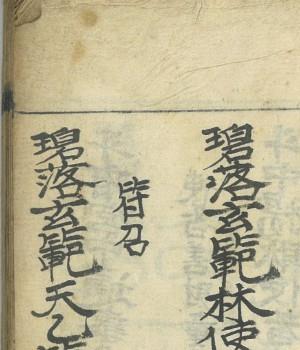 碧落玄範林使
皆召
碧落玄範天乙